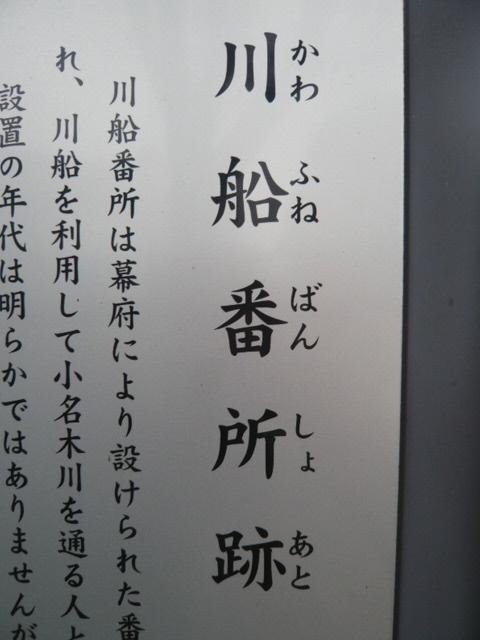 川船番所跡
かわ ふね ばん しょ あと
川船番所は幕府により設けられた番
れ、川船を利用して小名木川を通る人と
設置の年代は明らかではありませんが